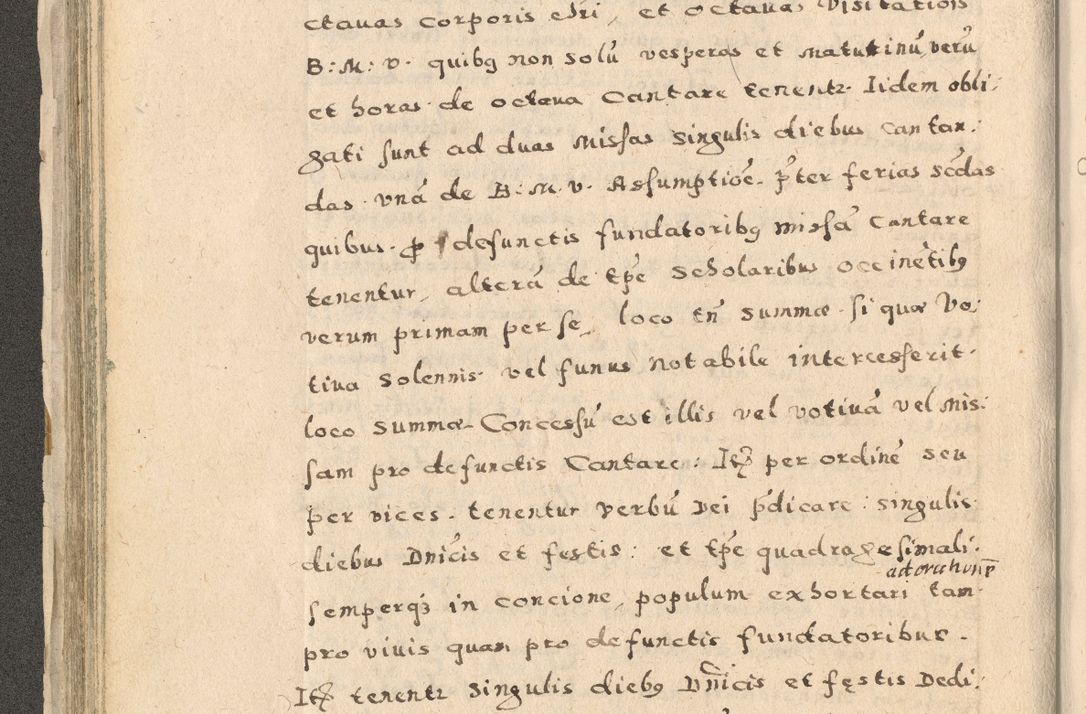 ctauas corporis xpri, et octauas Visitationis
B: M: v. quibq non solū vesperas et matutinū verū
et horas de octaua Cantare tenentr. Iidem obli:
gati sunt ad duas Missas singulis diebus cantan:
das. vnā de B: M. v. Assumptiōe. p̄ter ferias scdas
quibus. ꝓ defunctis fundatoribq missā Cantare
tenentur, alterā de tpe scholaribus occinētibq
verum primam per se, loco tn̄ summæ. si quæ Vo:
tiua solennis vel funus notabile intercesserit.
loco summæ. Concessū est illis vel votiuā vel mis:
sam pro defunctis Cantare: Itē per ordinē seu
per vices. tenentur verbū Dei p̄dicare: singulis
diebus Dnicis et festis: et tpe quadragesimali.
ad orationē
semperqȝ in concione, populum exhortari tam
pro viuis quam pro defunctis fundatoribus.
Itē tenentr singulis diebq Dnicis et festis Dedi: